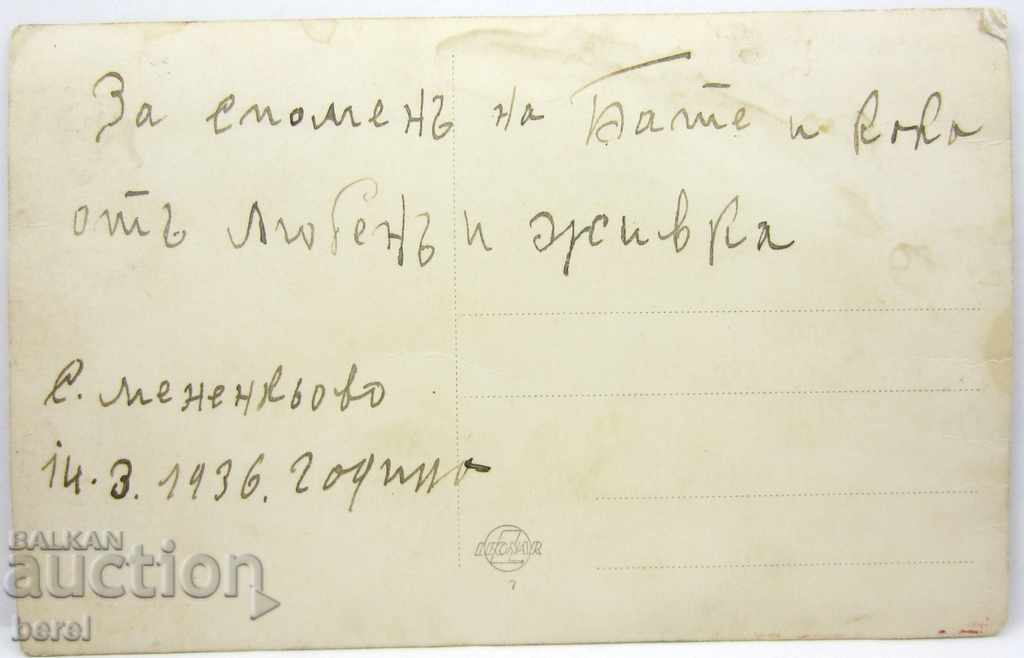 За споменъ на Бате и како
отъ Любенъ и живка
с. мененкьово
14.3.1936. година
BALKAN
auction
berel